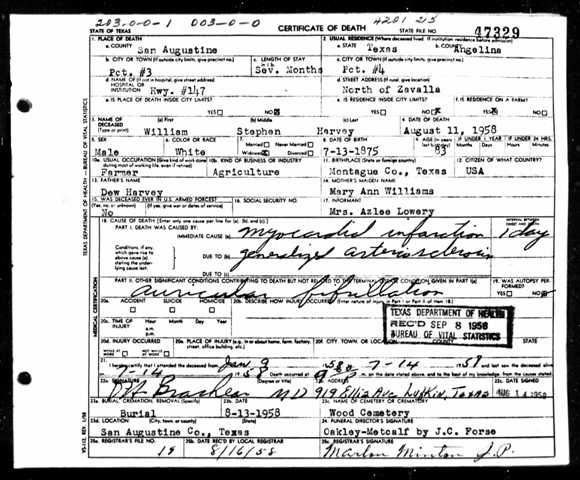 203-0-0-1 003-0-0 4201 25
STATE OF TEXAS CERTIFICATE OF DEATH 47329
1. PLACE OF DEATH 2. USUAL RESIDENCE (Where deceased lived. If institution: residence before admission)
a. COUNTY San Augustine a. STATE Texas b. COUNTY Angelina
b. CITY OR TOWN (If outside city limits, give precinct no.) c. LENGTH OF STAY c. CITY OR TOWN (If outside city limits, give precinct no.)
Pct. #3 Sev. Months Pct. #4
d. NAME OF (If not in hospital, give street address) d. STREET ADDRESS (If rural, give location)
HOSPITAL OR INSTITUTION Hwy. #147 North of Zavalla
e. IS PLACE OF DEATH INSIDE CITY LIMITS? e. IS RESIDENCE INSIDE CITY LIMITS? f. IS RESIDENCE ON A FARM?
YES NO YES NO YES NO
3. NAME OF DECEASED (a) First (b) Middle (c) Last 4. DATE OF DEATH
(Type or print) William Stephen Harvey August 11, 1958
5. SEX 6. COLOR OR RACE 7. Married Never Married 8. DATE OF BIRTH 9. AGE IF UNDER 1 YEAR IF UNDER 24 HRS.
Male White Widowed Divorced 7-13-1875 83
10a. USUAL OCCUPATION (Give kind of work done during most of working life, even if retired) 10b. KIND OF BUSINESS OR INDUSTRY 11. BIRTHPLACE (State or foreign country) 12. CITIZEN OF WHAT COUNTRY?
Farmer Agriculture Montague Co., Texas USA
13. FATHER'S NAME 14. MOTHER'S MAIDEN NAME
Dew Harvey Mary Ann Williams
15. WAS DECEASED EVER IN U.S. ARMED FORCES? 16. SOCIAL SECURITY NO. 17. INFORMANT
(Yes, no, or unknown) (If yes, give war or dates of service)
No Mrs. Azlee Lowery
18. CAUSE OF DEATH (Enter only one cause per line for (a), (b), and (c).) INTERVAL BETWEEN
PART I. DEATH WAS CAUSED BY:
IMMEDIATE CAUSE (a) myocardial infarction 1 day
Conditions, if any, which gave rise to above cause (a) stating the underlying cause last.
DUE TO (b) generalized arteriosclerosis
DUE TO (c)
PART II. OTHER SIGNIFICANT CONDITIONS CONTRIBUTING TO DEATH BUT NOT RELATED TO THE TERMINAL 19. WAS AUTOPSY PERFORMED?
auricular fibrillation YES NO
20a. ACCIDENT SUICIDE HOMICIDE 20b. DESCRIBE HOW INJURY OCCURRED. (Enter nature of injury in Part I or Part II of item 18.)
20c. TIME OF INJURY Hour Month Day Year
a.m.
p.m.
TEXAS DEPARTMENT OF HEALTH
REC'D SEP 8 1958
BUREAU OF VITAL STATISTICS
20d. INJURY OCCURRED 20e. PLACE OF INJURY (e.g., in or about home, farm, factory, street, office building, etc.) 20f. CITY, TOWN, OR LOCATION COUNTY STATE
WHILE AT WORK NOT WHILE AT WORK
21. I hereby certify that I attended the deceased from Jan 9 1958 to 7-14 1958 and last saw the deceased alive
Death occurred at on the date stated above, and to the best of my knowledge, from the causes stated.
22a. SIGNATURE (Degree or title) 22b. ADDRESS 22c. DATE SIGNED
Brashear MD 919 Ellis Ave Lufkin, Texas AUG 14 1958
23a. BURIAL, CREMATION, REMOVAL (Specify) 23b. DATE 23c. NAME OF CEMETERY OR CREMATORY
Burial 8-13-1958 Wood Cemetery
23d. LOCATION (City, town, or county) (State) 24. FUNERAL DIRECTOR'S SIGNATURE
San Augustine Co., Texas Oakley-Metcalf by J.C. Forse
25a. REGISTRAR'S FILE NO. 25b. DATE REC'D BY LOCAL REGISTRAR 25c. REGISTRAR'S SIGNATURE
19 8/16/58 Marlon Minton J.P.
TEXAS DEPARTMENT OF HEALTH — BUREAU OF VITAL STATISTICS
MEDICAL CERTIFICATION